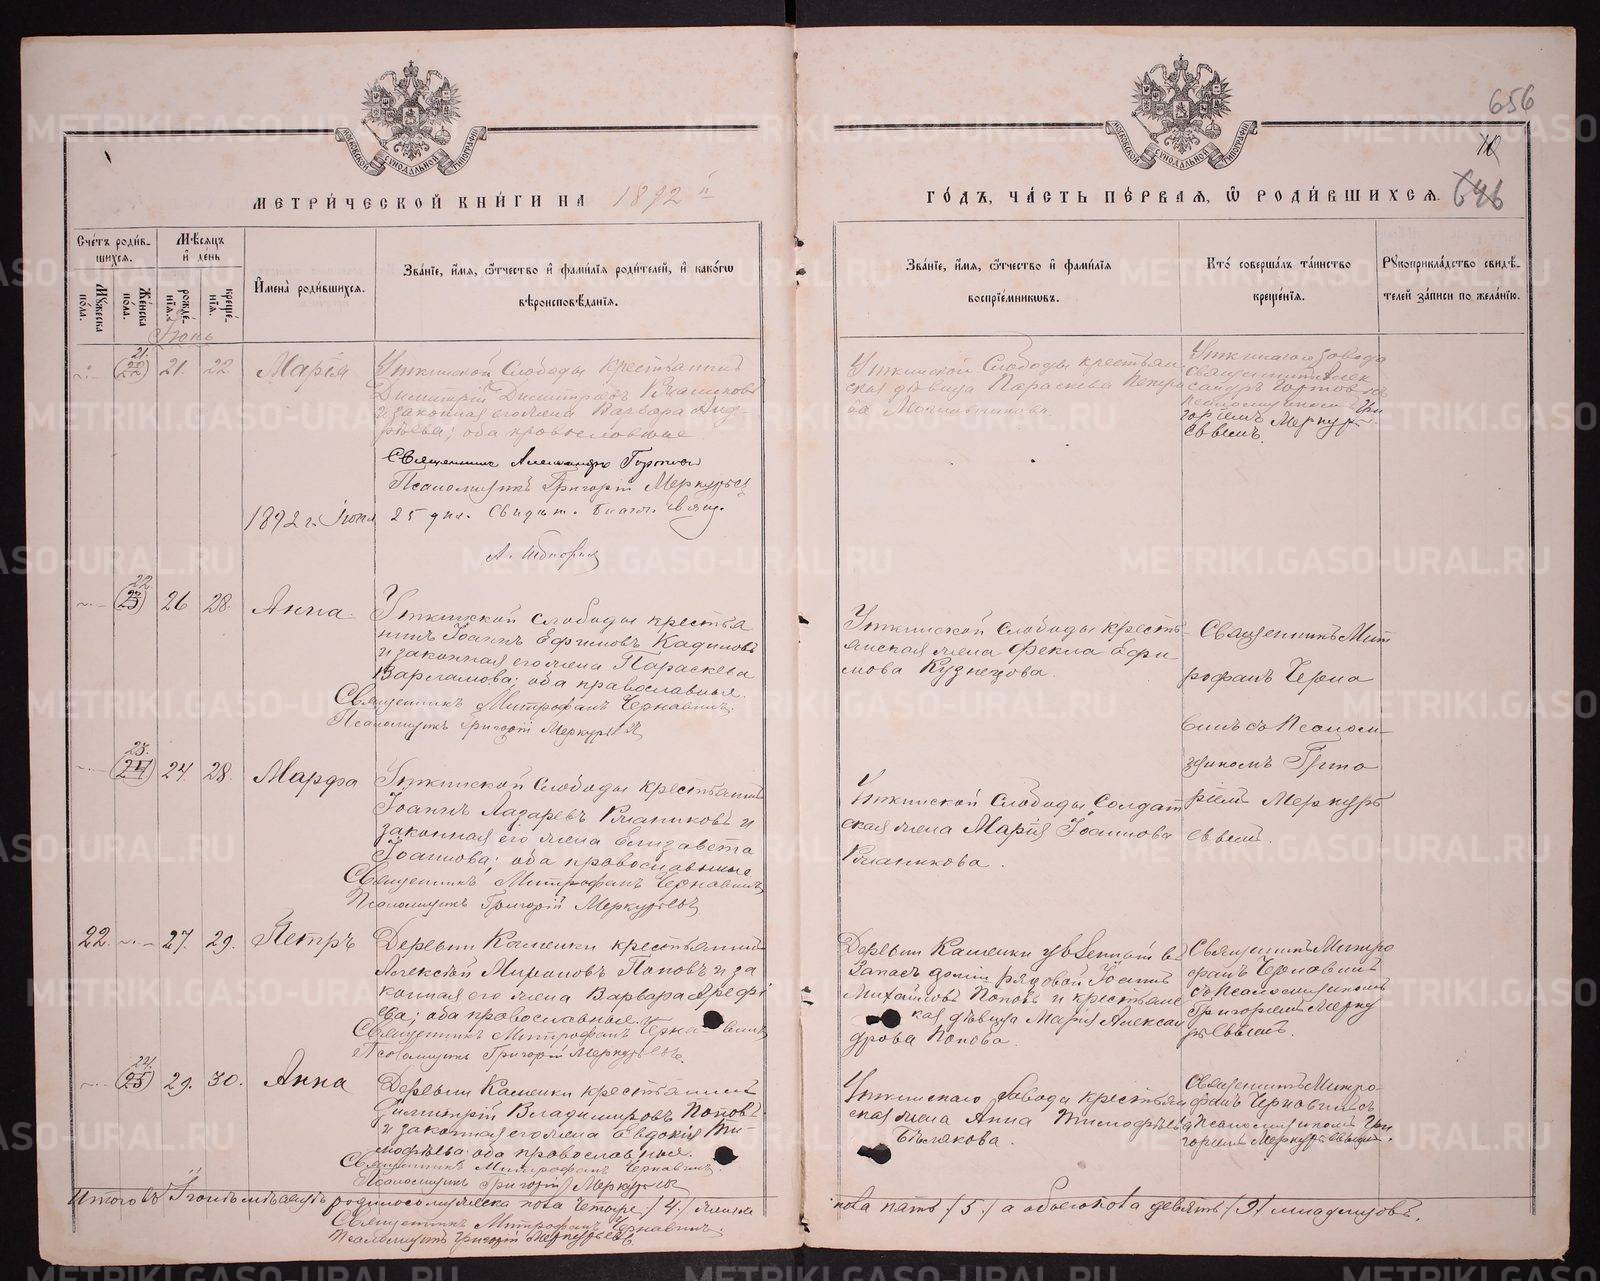 656
70
646
МЕТРИ́ЧЕСКОЙ КНИ́ГИ НА 1892 й
ГО́ДЪ, ЧА́СТЬ ПЕ́РВАЯ, Ѡ РОДИ́ВШИХСЯ.
Сче́тъ роди́в-
шихся.
Му́жеска по́ла.
Же́нска по́ла.
Мѣ́сяцъ
и҆ де́нь
рожде́-
нїя.
креще́-
нїя.
И҆мена̀ роди́вшихся.
Зва́нїе, и҆́мя, ѻ҆́тчество и҆ фами́лїя роди́телей, и҆ како́гѡ
вѣроисповѣ́данїя.
Зва́нїе, и҆́мя, ѻ҆́тчество и҆ фами́лїя
воспрїе́мникѡвъ.
Кто̀ соверша́лъ та́инство
креще́нїя.
Рꙋкоприкла́дство свидѣ́-
телей за́писи по жела́нїю.
Іюнь
21.
22
21. 22. Марія
Уткинской Слободы крестьянинъ
Димитрій Димитріевъ
и законная его жена Варвара Анд-
рѣева; оба православные
Священникъ Александръ
Псаломщикъ Григорій Меркурьев
1892 г. Іюня 25 дня. Свидѣт. Благоч. Свящ.
Уткинской Слободы крестьян
ская дѣвица Параскева Петро
ва
Уткинскаго завода
Священникъ Алек
сандръ
псаломщикомъ Гри
горіемъ Меркурь
евымъ.
22
23 26 28. Анна
Уткинской слободы крестья
нинъ Іоаннъ Ефимовъ
и законная его жена Параскева
Варламова; оба православные.
Священникъ Митрофанъ Чернавинъ.
Псаломщикъ Григорій Меркурьевъ
Уткинской Слободы кресть
янская жена Фекла Ефи
мова Кузнецова.
Священникъ Мит
рофанъ Черна
винъ съ Псалом-
щикомъ Григо
ріемъ Меркурь
евымъ.
23.
24 24. 28. Марфа
Уткинской Слободы крестьянинъ
Іоаннъ Лазаревъ и
законная его жена Елизавета
Іоаннова; оба православные
Священникъ Митрофанъ Чернавинъ
Псаломщикъ Григорій Меркурьевъ
Уткинской Слободы Солдат
ская жена Марія Іоаннова
22. 27. 29. Петръ
Деревни Каменки крестьянинъ
Алексій Мироновъ Поповъ и за
конная его жена Варвара Арефі
ева; оба православные.
Священникъ Митрофанъ Чернавинъ
Псаломщикъ Григорій Меркурьевъ.
Деревни Каменки уволенный въ
Запасъ арміи рядовой Іоаннъ
Михайловъ Поповъ и крестьянс
кая дѣвица Марія Алексан
дрова Попова.
Священникъ Митро
фанъ Чернавинъ
съ Псаломщикомъ
Григоріемъ Мерку
рьевымъ.
24.
25 29. 30. Анна
Деревни Каменки крестьянинъ
Димитрій Владиміровъ Поповъ
и законная его жена Евдокія Ти-
мофѣева; оба православные.
Священникъ Митрофанъ Чернавинъ.
Псаломщикъ Григорій Меркурьевъ
Уткинскаго Завода крестьян
ская жена Анна Тимофѣева
Бѣлякова.
Священникъ Митро-
фанъ Чернавинъ съ
Псаломщикомъ Гри
горіемъ Меркурьевымъ.
Итого въ Іюнѣ мѣсяцѣ родилось мужеска пола четыре /4/ женска
пола пять /5/ а обоего пола девять /9/ младенцовъ.
Священникъ Митрофанъ Чернавинъ.
Псаломщикъ Григорій Меркурьевъ
METRIKI.GASO-URAL.RU